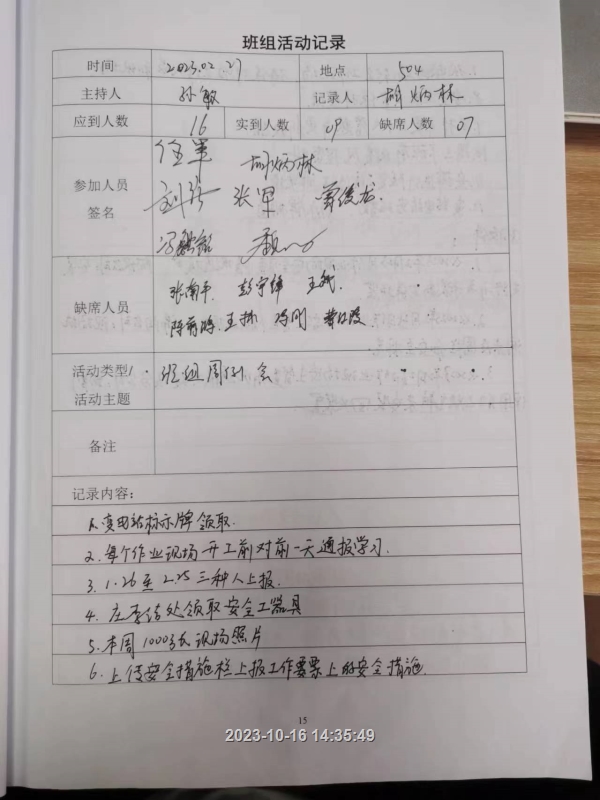 班组活动记录
时间 2023.02.27 地点 504
主持人 孙敏 记录人 胡炳林
应到人数 16 实到人数 09 缺席人数 07
参加人员
签名
胡炳林
张军
缺席人员
张南平 彭宇锋 王斌
王林 冯刚
活动类型/
活动主题
班组周例会
备注
记录内容：
1、变电站标示牌领取.
2、每个作业现场开工前对前一天通报学习.
3、1.26至2.25三种人上报.
4、庄李结处领取安全工器具
5、本周1000多张现场照片
6、上传安全措施栏上报工作票票上的安全措施.
15
2023-10-16 14:35:49